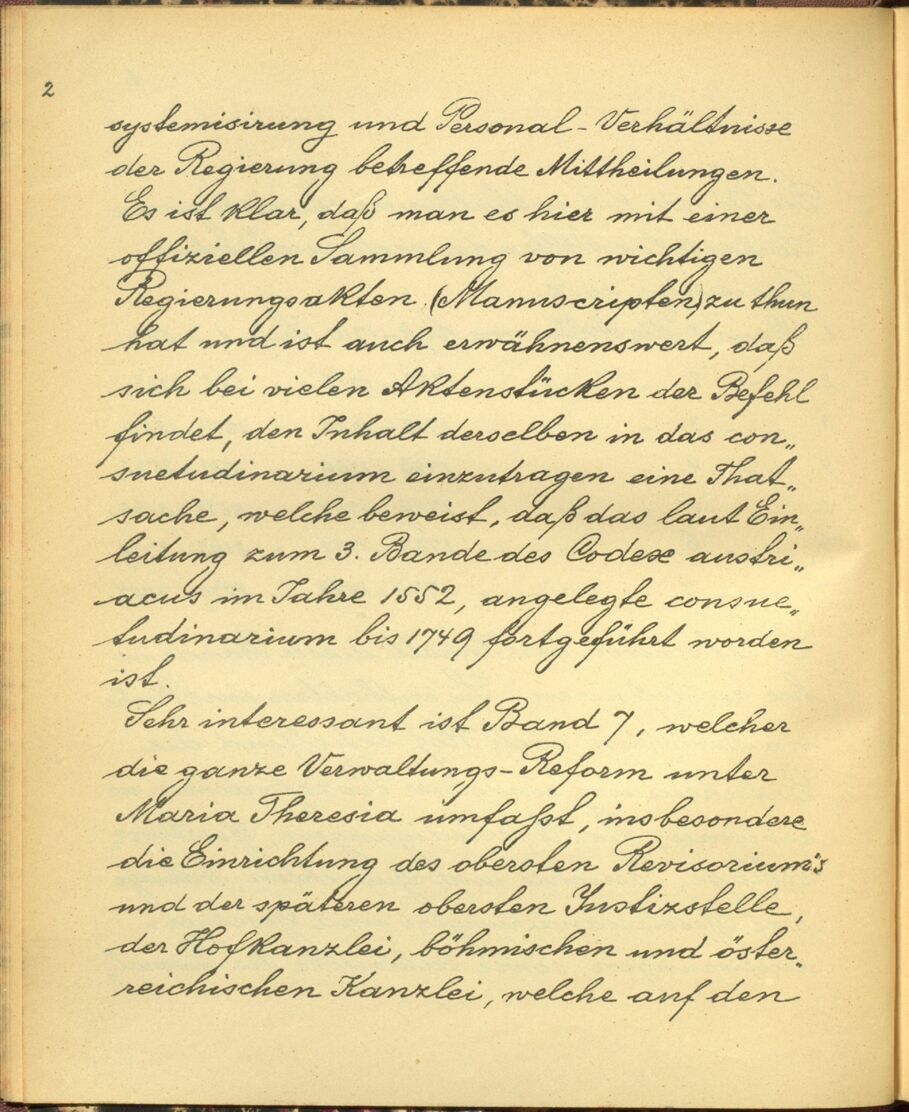 2
systemisirung und Personal-Verhältnisse
der Regierung betreffende Mittheilungen.
Es ist klar, daß man es hier mit einer
offiziellen Sammlung von wichtigen
Regierungsakten (Manuscripten) zu thun
hat und ist auch erwähnenswert, daß
sich bei vielen Aktenstücken der Befehl
findet, den Inhalt derselben in das con„
suetudinarium einzutragen eine That„
sache, welche beweist, daß das laut Ein„
leitung zum 3. Bande des Codex austri„
acus im Jahre 1552, angelegte consue„
tudinarium bis 1749 fortgeführt worden
ist.
Sehr interessant ist Band 7, welcher
die ganze Verwaltungs-Reform unter
Maria Theresia umfaßt, insbesondere
die Einrichtung des obersten Revisorium's
und der späteren obersten Justizstelle,
der Hofkanzlei, böhmischen und öster„
reichischen Kanzlei, welche auf den